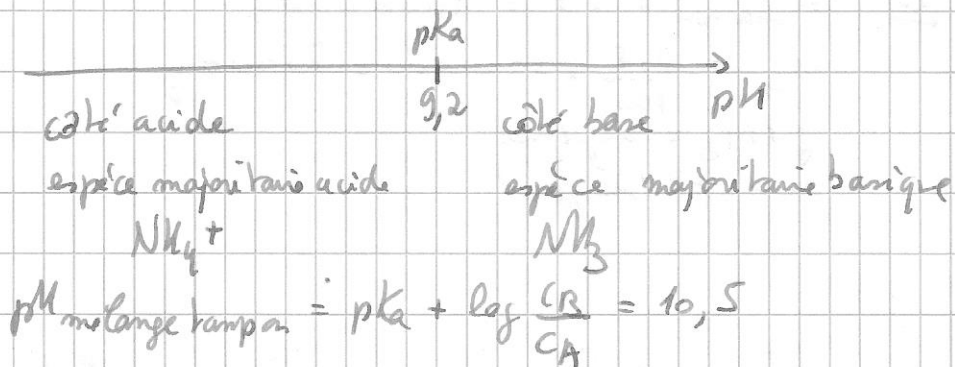 pKa
9,2 pH
côté acide côté base
espèce majoritaire acide espèce majoritaire basique
NH4+ NH3
pH mélange tampon = pKa + log CB/CA = 10,5